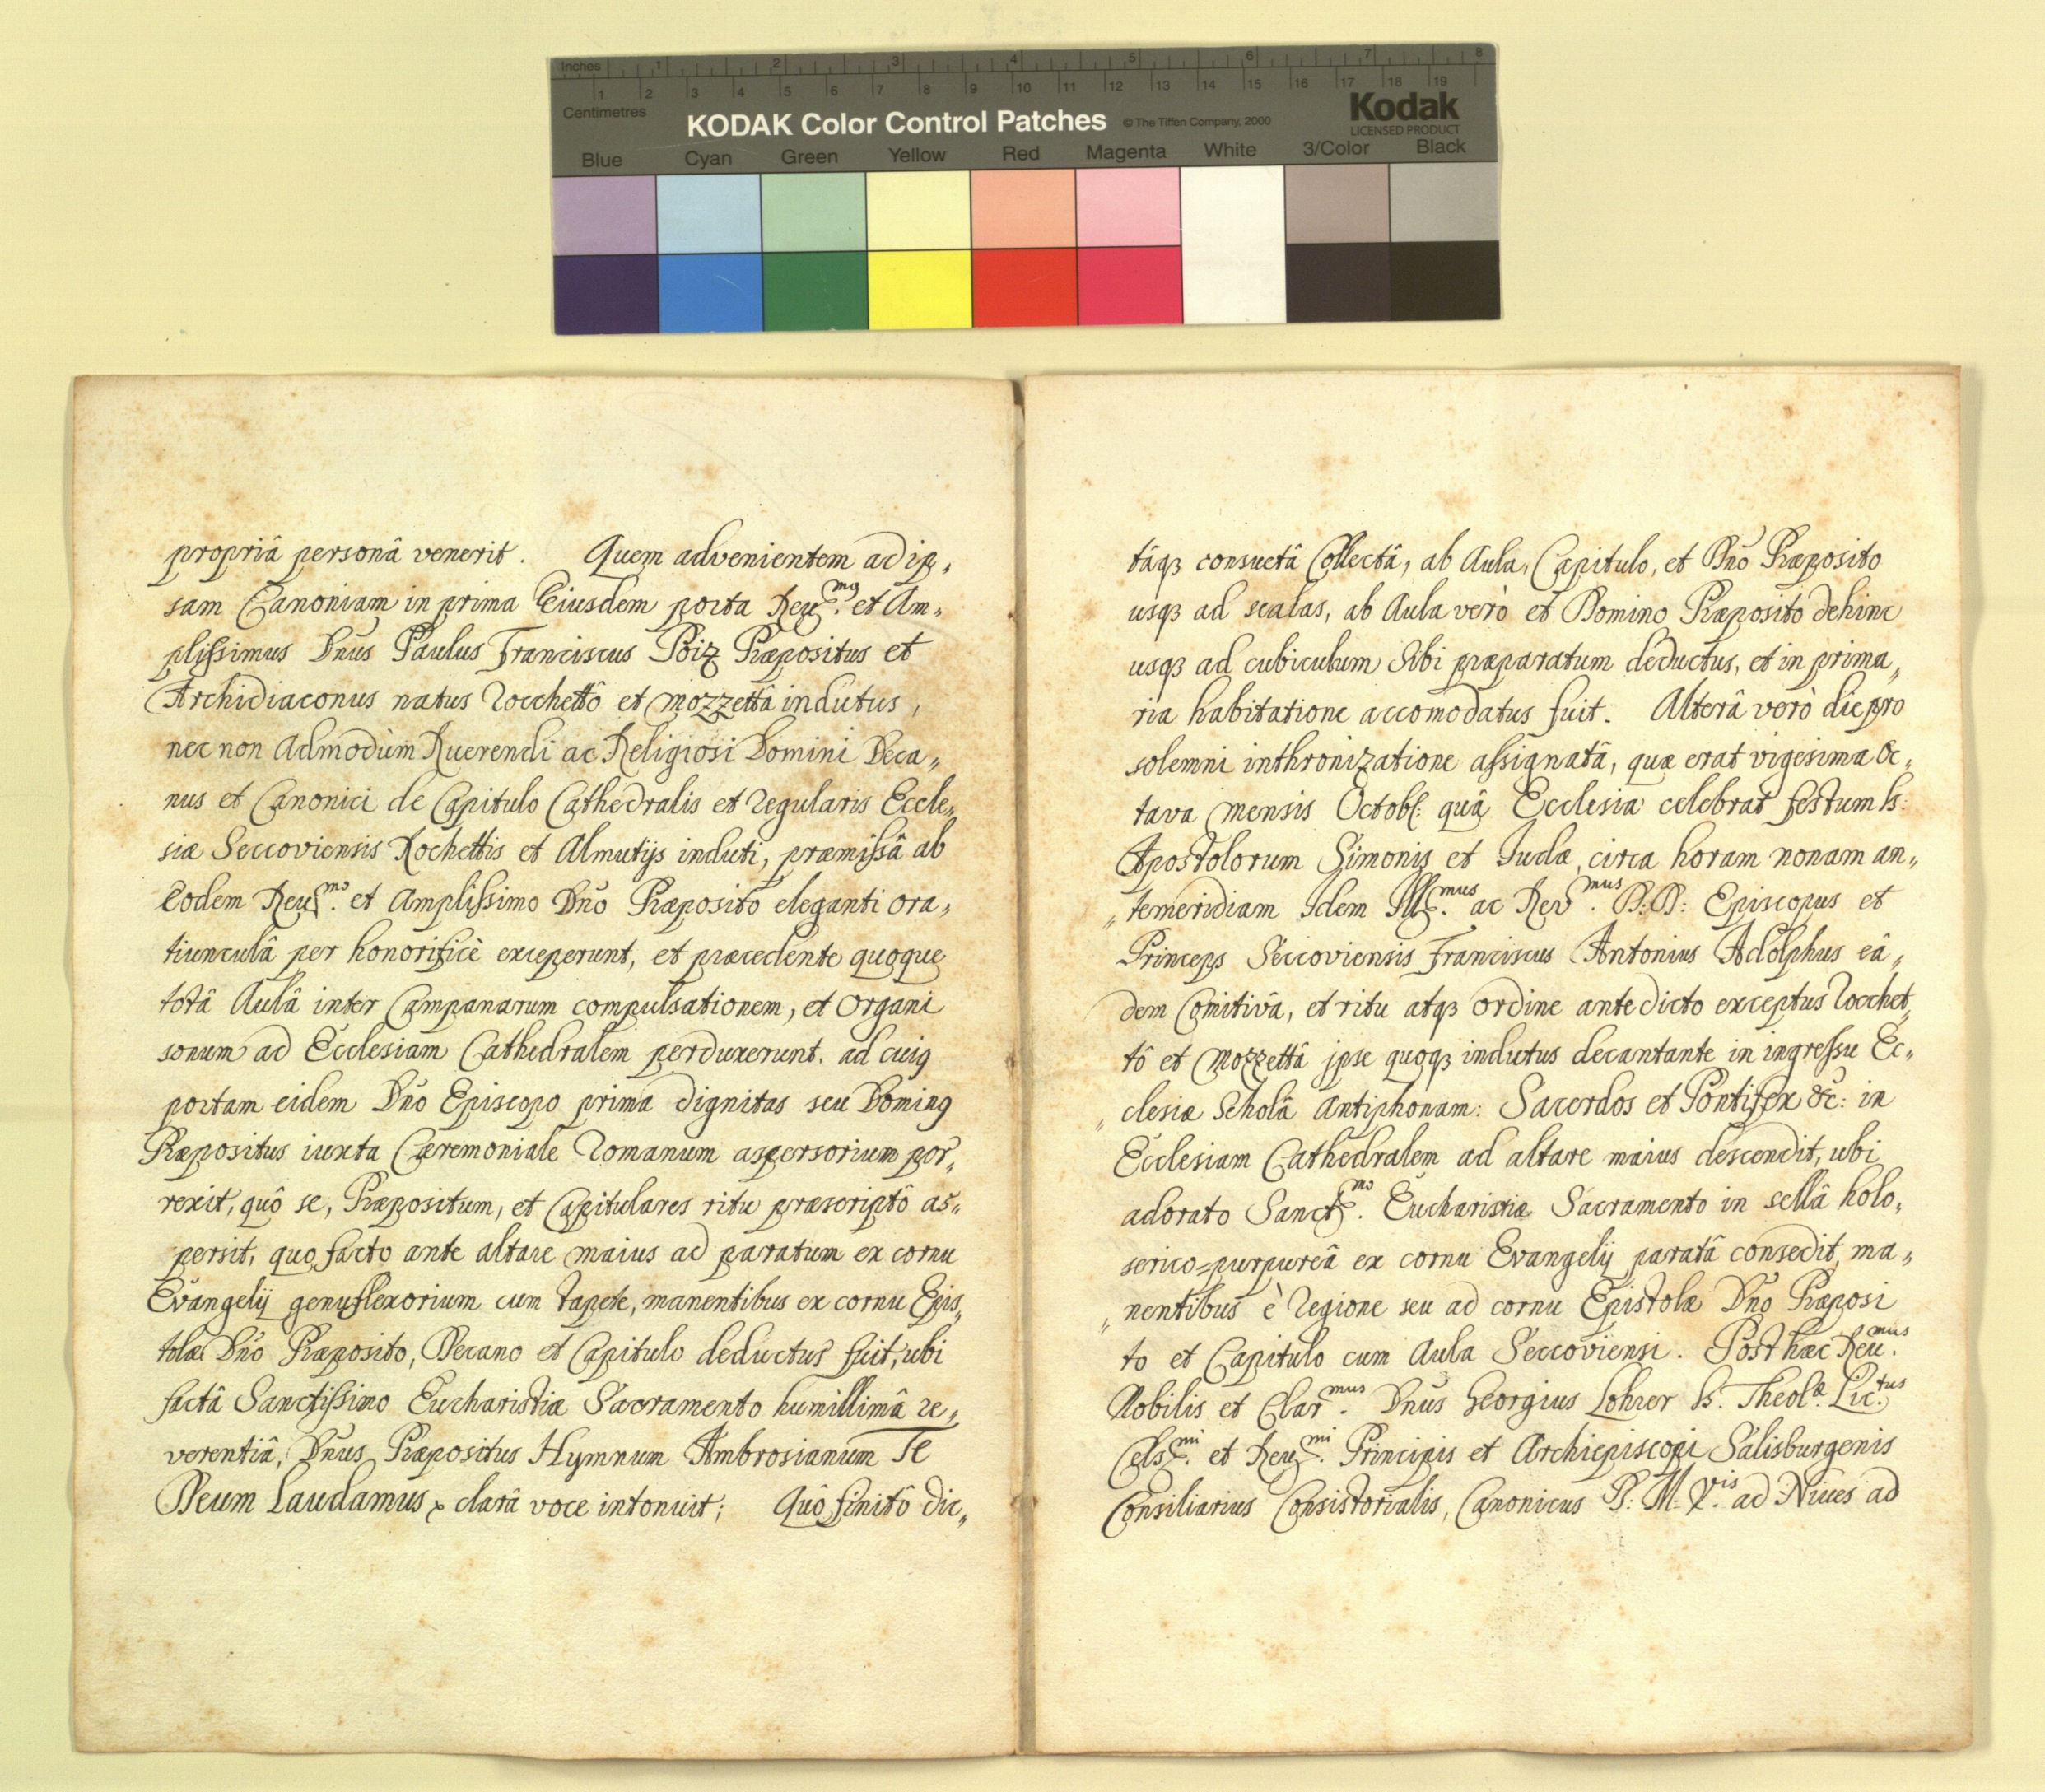 Inches 1 2 3 4 5 6 7 8
Centimetres 1 2 3 4 5 6 7 8 9 10 11 12 13 14 15 16 17 18 19
KODAK Color Control Patches © The Tiffen Company, 2000 Kodak
LICENSED PRODUCT
Blue Cyan Green Yellow Red Magenta White 3/Color Black
propriâ personâ venerit. Quem advenientem ad ip„
sam Canoniam in prima Eiusdem porta Reu.mq et Am„
plissimus Dn̄us Paulus Franciscus Poiz Præpositus et
Archidiaconus natus rocchettô et mozzettâ indutus,
nec non Admodùm Ruerendi ac Religiosi Domini Deca„
nus et Canonici de Capitulo Cathedralis et regularis Eccle„
siæ Seccoviensis Rochettis et Almutijs induti, præmissâ ab
Eodem Reu.mo et Amplissimo Dn̄o Præposito eleganti ora„
tiunculâ per honorificè exceperunt, et præcedente quoque
totâ Aulâ inter Campanarum compulsationem, et Organi
sonum ad Ecclesiam Cathedralem perduxerunt. ad cuiq
portam eidem Dn̄o Episcopo prima dignitas seu Dominq
Præpositus iuxta Cæremoniale Romanum aspersorium por„
rexit, quô se, Præpositum, et Capitulares ritu præscriptô as„
persit, quo facto ante altare maius ad paratum ex cornu
Evangelij genuflexorium cum tapete, manentibus ex cornu Epis„
tolæ Dn̄o Præposito, Decano et Capitulo deductus fuit, ubi
factâ Sanctissimo Eucharistiæ Sacramento humillimâ re„
verentiâ, Dn̄us Præpositus Hymnum Ambrosianum Te
Deum Laudamus clarâ voce intonuit; Quô finitô dic„
tâqꝫ consuetâ Collectâ, ab Aula, Capitulo, et Dn̄o Præposito
usqꝫ ad scalas, ab Aula verò et Domino Præposito dehinc
usqꝫ ad cubiculum Sibi præparatum deductus, et in prima„
ria habitatione accomodatus fuit. Alterâ verò die pro
solemni inthronizatione assignatâ, quæ erat vigesima Oc„
tava mensis Octob: quâ Ecclesia celebrat festum S:
Apostolorum Simonis et Iudæ, circa horam nonam an„
„temeridiam Idem Ill.mus ac Rev.mus D:D: Episcopus et
Princeps Seccoviensis Franciscus Antonius Adolphus eâ„
dem Comitivâ, et ritu atqꝫ ordine ante dicto exceptus rocchet„
tô et mozzettâ jpse quoqꝫ indutus decantante in ingressu Ec„
„clesiæ Scholâ Antiphonam: Sacerdos et Pontifex &c: in
Ecclesiam Cathedralem ad altare maius descendit, ubi
adorato Sanct.mo Eucharistiæ Sacramento in sellâ holo„
serico=purpureâ ex cornu Evangelij paratâ consedit, ma„
„nentibus è regione seu ad cornu Epistolæ Dn̄o Præposi
to et Capitulo cum Aula Seccoviensi. Post hæc Reu.mus
Nobilis et Clar.mus Dn̄us Georgius Lohrer S: Theol.æ Lic.tus
Cels.mi et Reu.mi Principis et Archiepiscopi Salisburgenis
Consiliarius Consistorialis, Canonicus B: M: V.is ad Niues ad